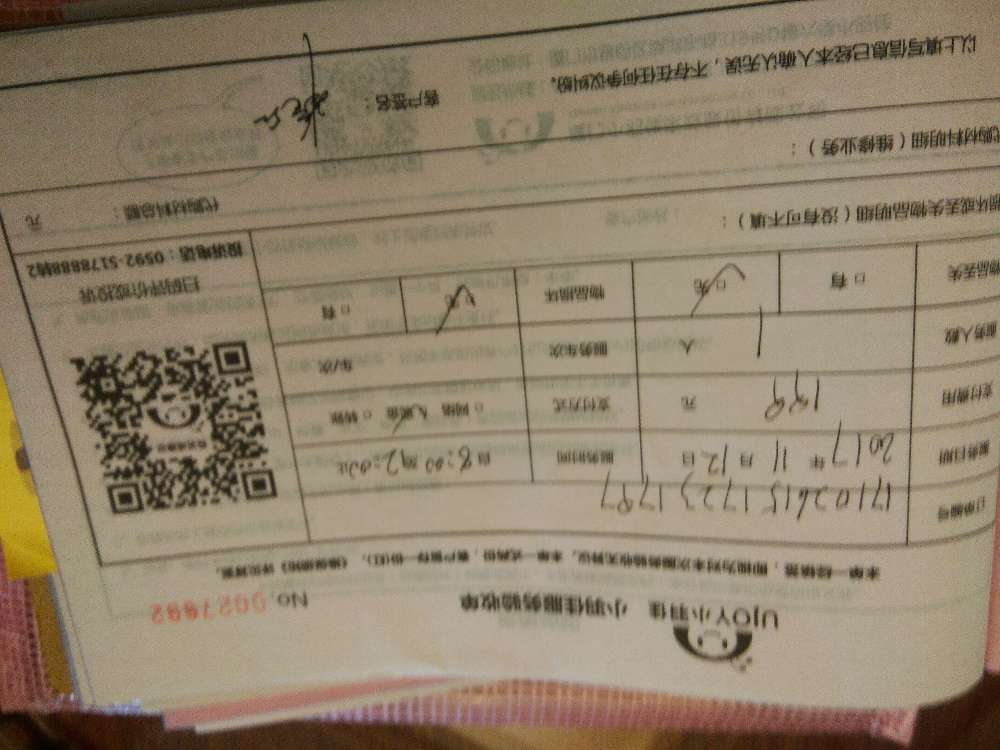 UJOY小羽佳 小羽佳服务验收单 No. 0027692
本单一经签署，即视为对本次服务验收无异议。本单一式两份，客户留存一份(红)，《维保细则》详见背页。
订单编号 1710261517231797
服务日期 2017 年 11 月 12 日 服务时间 自 8:00 始 2:00止
支付费用 199 元 支付方式 □ 网络 现金 □ 转账
服务人数 1 人 服务车次 车/次
物品丢失 □ 有 □ 无 物品损坏 □ 无 □ 有
扫码评价或投诉
投诉电话：0592-5178888转2
损坏或丢失物品明细（没有可不填）：
代购材料总额： 元
代购材料明细（维修业务）：
以上填写信息已经本人确认无误，不存在任何争议纠纷。
客户签名：